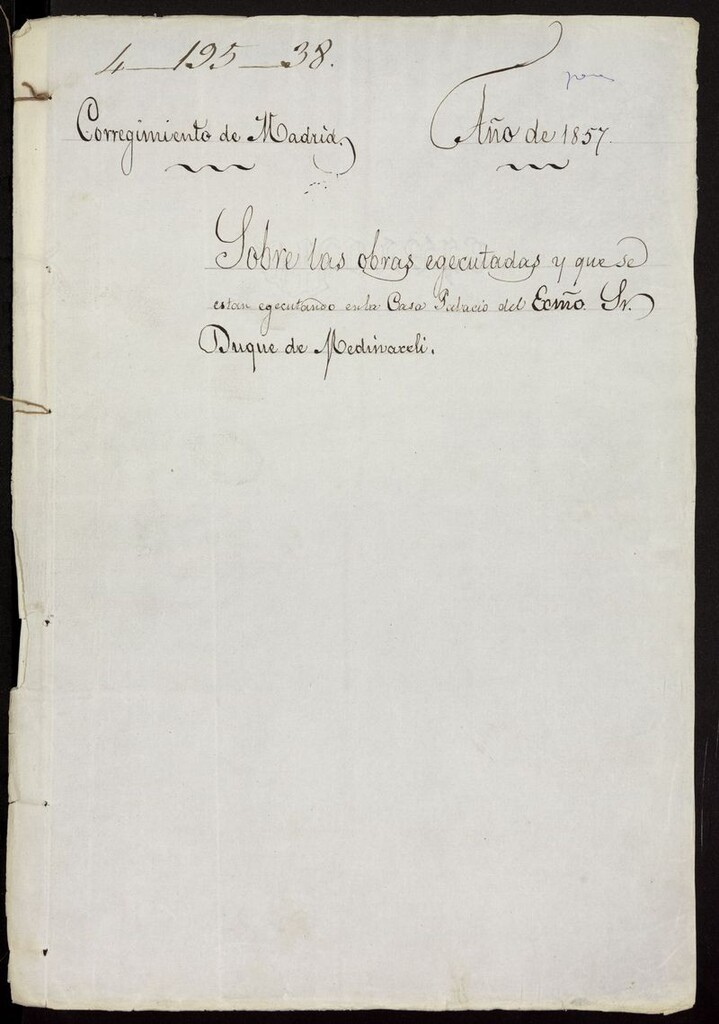 4—195—38.
Corregimiento de Madrid.
Año de 1857.
Sobre las obras egecutadas y que se
estan egecutando en la Casa Palacio del Exmo. Sr.
Duque de Medinaceli.